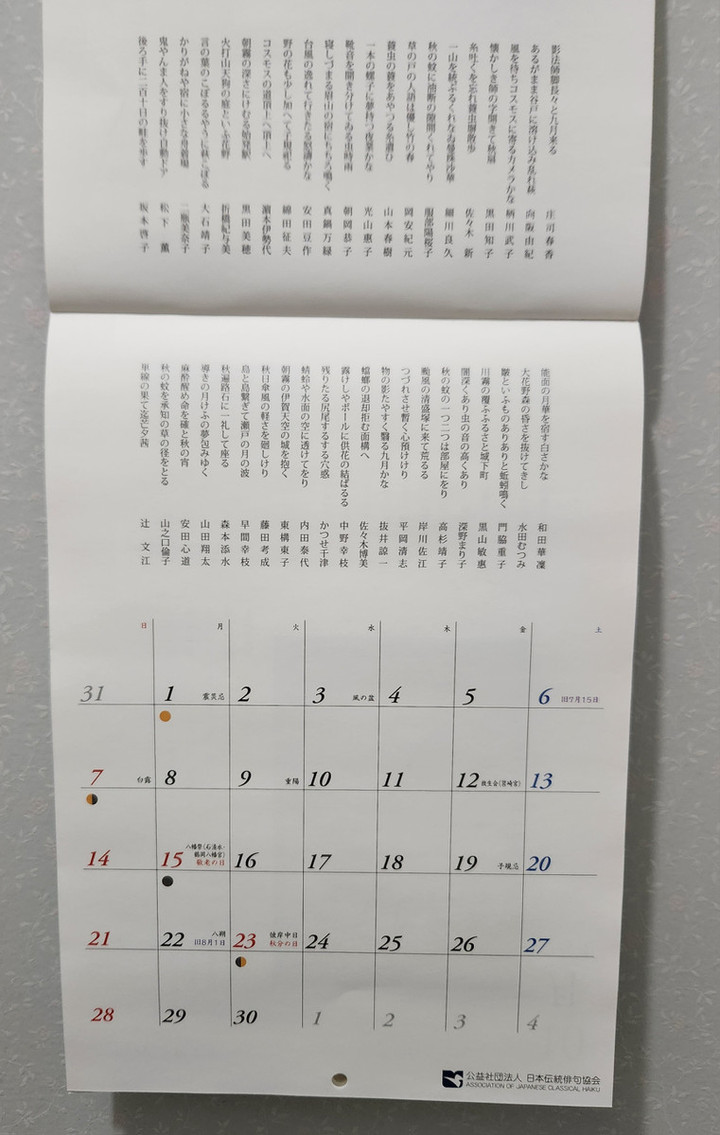 影法師脚長々と九月来る 庄司春香
あるがまま谷戸に溶け込み乱れ萩 向阪由紀
風を待ちコスモスに寄るカメラかな 柄川武子
懐かしき師の字開きて秋扇 黒田知子
糸吐くを忘れ蓑虫獣散歩 佐々木新
一山を統ぶるくれなゐ曼珠沙華 細川良久
秋の蚊に油断の隙間くれてやり 服部陽桜子
草の戸の人語は優し竹の春 岡安紀元
蓑虫の蓑をあやつる糸遊び 山本春樹
一本の螺子に夢持つ夜業かな 光山惠子
靴音を聞き分けてゐる虫時雨 朝岡恭子
寝しづまる眉山の宿にちちろ鳴く 真鍋万緑
台風の逸れて行きたる怒濤かな 安田豆作
野の花も少し加へて子規祀る 綿田征夫
コスモスの道頂上へ頂上へ 濵本伊勢代
朝霧の深さにけむる始発駅 黒田美穂
火打山天狗の庭といふ花野 折橋紀与美
言の葉のこぼるるやうに萩こぼる 大石靖子
かりがねや宿に小さな舟着場 二瓶美奈子
鬼やんま人をすり抜け自動ドア 松下薫
後ろ手に二百十日の畦を歩す 坂本啓子
能面の月華を宿す白さかな 和田華凜
大花野森の昏さを抜けてきし 水田むつみ
皺といふものありありと蚯蚓鳴く 門脇重子
川霧の覆ふふるさと城下町 黒山敏惠
闇深くあり虫の音の高くあり 深野まり子
秋の蚊の一つ二つは部屋にをり 高杉靖子
颱風の清盛塚に来て荒るる 岸川佐江
つづれさせ暫く心預けけり 平岡清志
物の影たやすく翳る九月かな 抜井諒一
蟷螂の退却拒む面構へ 佐々木博美
露けしやポールに供花の結ばるる 中野幸枝
残りたる尻尾するする穴惑 かつせ千津
蜻蛉や水面の空に透けてをり 内田泰代
朝霧の伊賀天空の城を抱く 東構東子
秋日傘風の軽さを廻しけり 藤田考成
島と島繋ぎて瀬戸の月の波 早間幸枝
秋遍路石に一礼して座る 森本添水
導きの月けふの夢包みゆく 山田翔太
麻酔醒め命を確と秋の宵 安田心道
秋の蚊を承知の草の径をとる 山之口倫子
単線の果て迄芒夕茜 辻文江
日 月 火 水 木 金 土
31 1 震災忌 2 3 風の盆 4 5 6 旧7月15日
7 白露 8 9 重陽 10 11 12 放生会(筥崎宮) 13
14 15 八幡祭(石清水・鶴岡八幡宮) 敬老の日 16 17 18 19 子規忌 20
21 22 八朔 旧8月1日 23 彼岸中日 秋分の日 24 25 26 27
28 29 30 1 2 3 4
公益社団法人 日本伝統俳句協会
ASSOCIATION OF JAPANESE CLASSICAL HAIKU